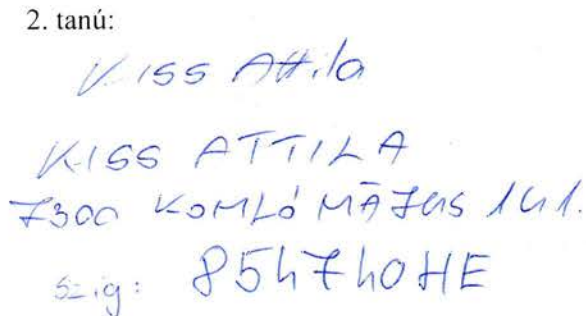 2. tanú:
Kiss Attila
KISS ATTILA
7300 KOMLÓ MÁJUS 1 U 1.
Szig: 854740HE